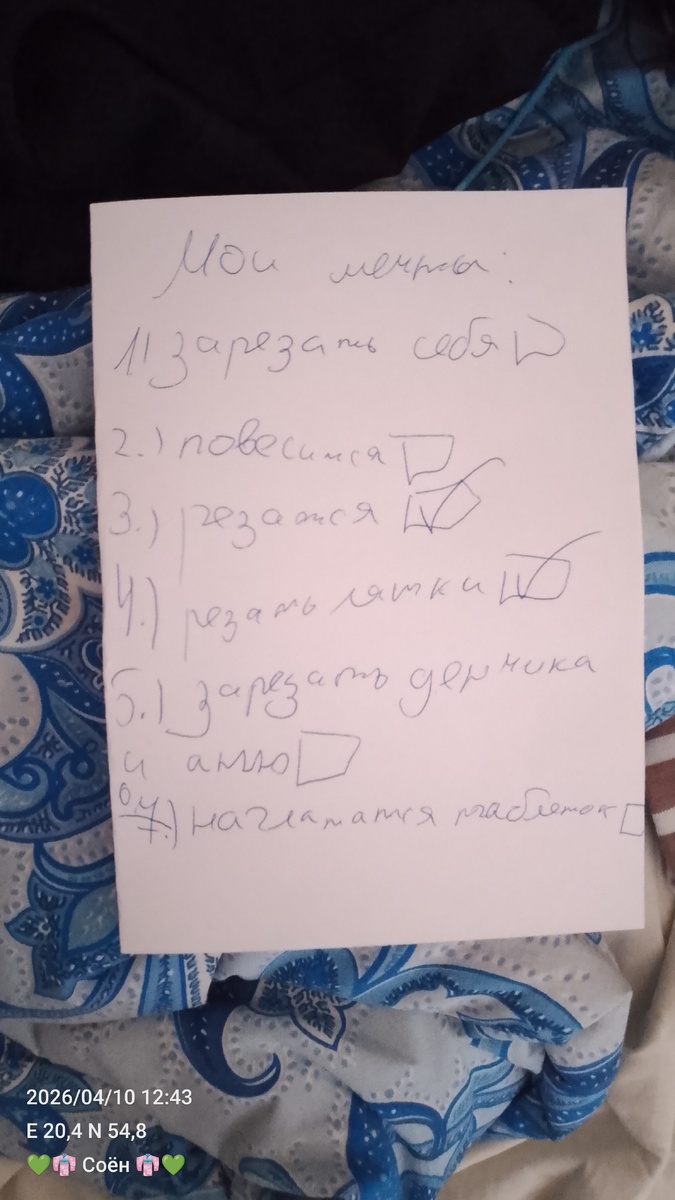 Мои мечты:
1) зарезать себя
2.) повесится
3.) резатся
4.) резать
5.) зарезать
и аню
7.) наглататся таблеток
2026/04/10 12:43
E 20,4 N 54,8
💚👘 Соён 👘💚